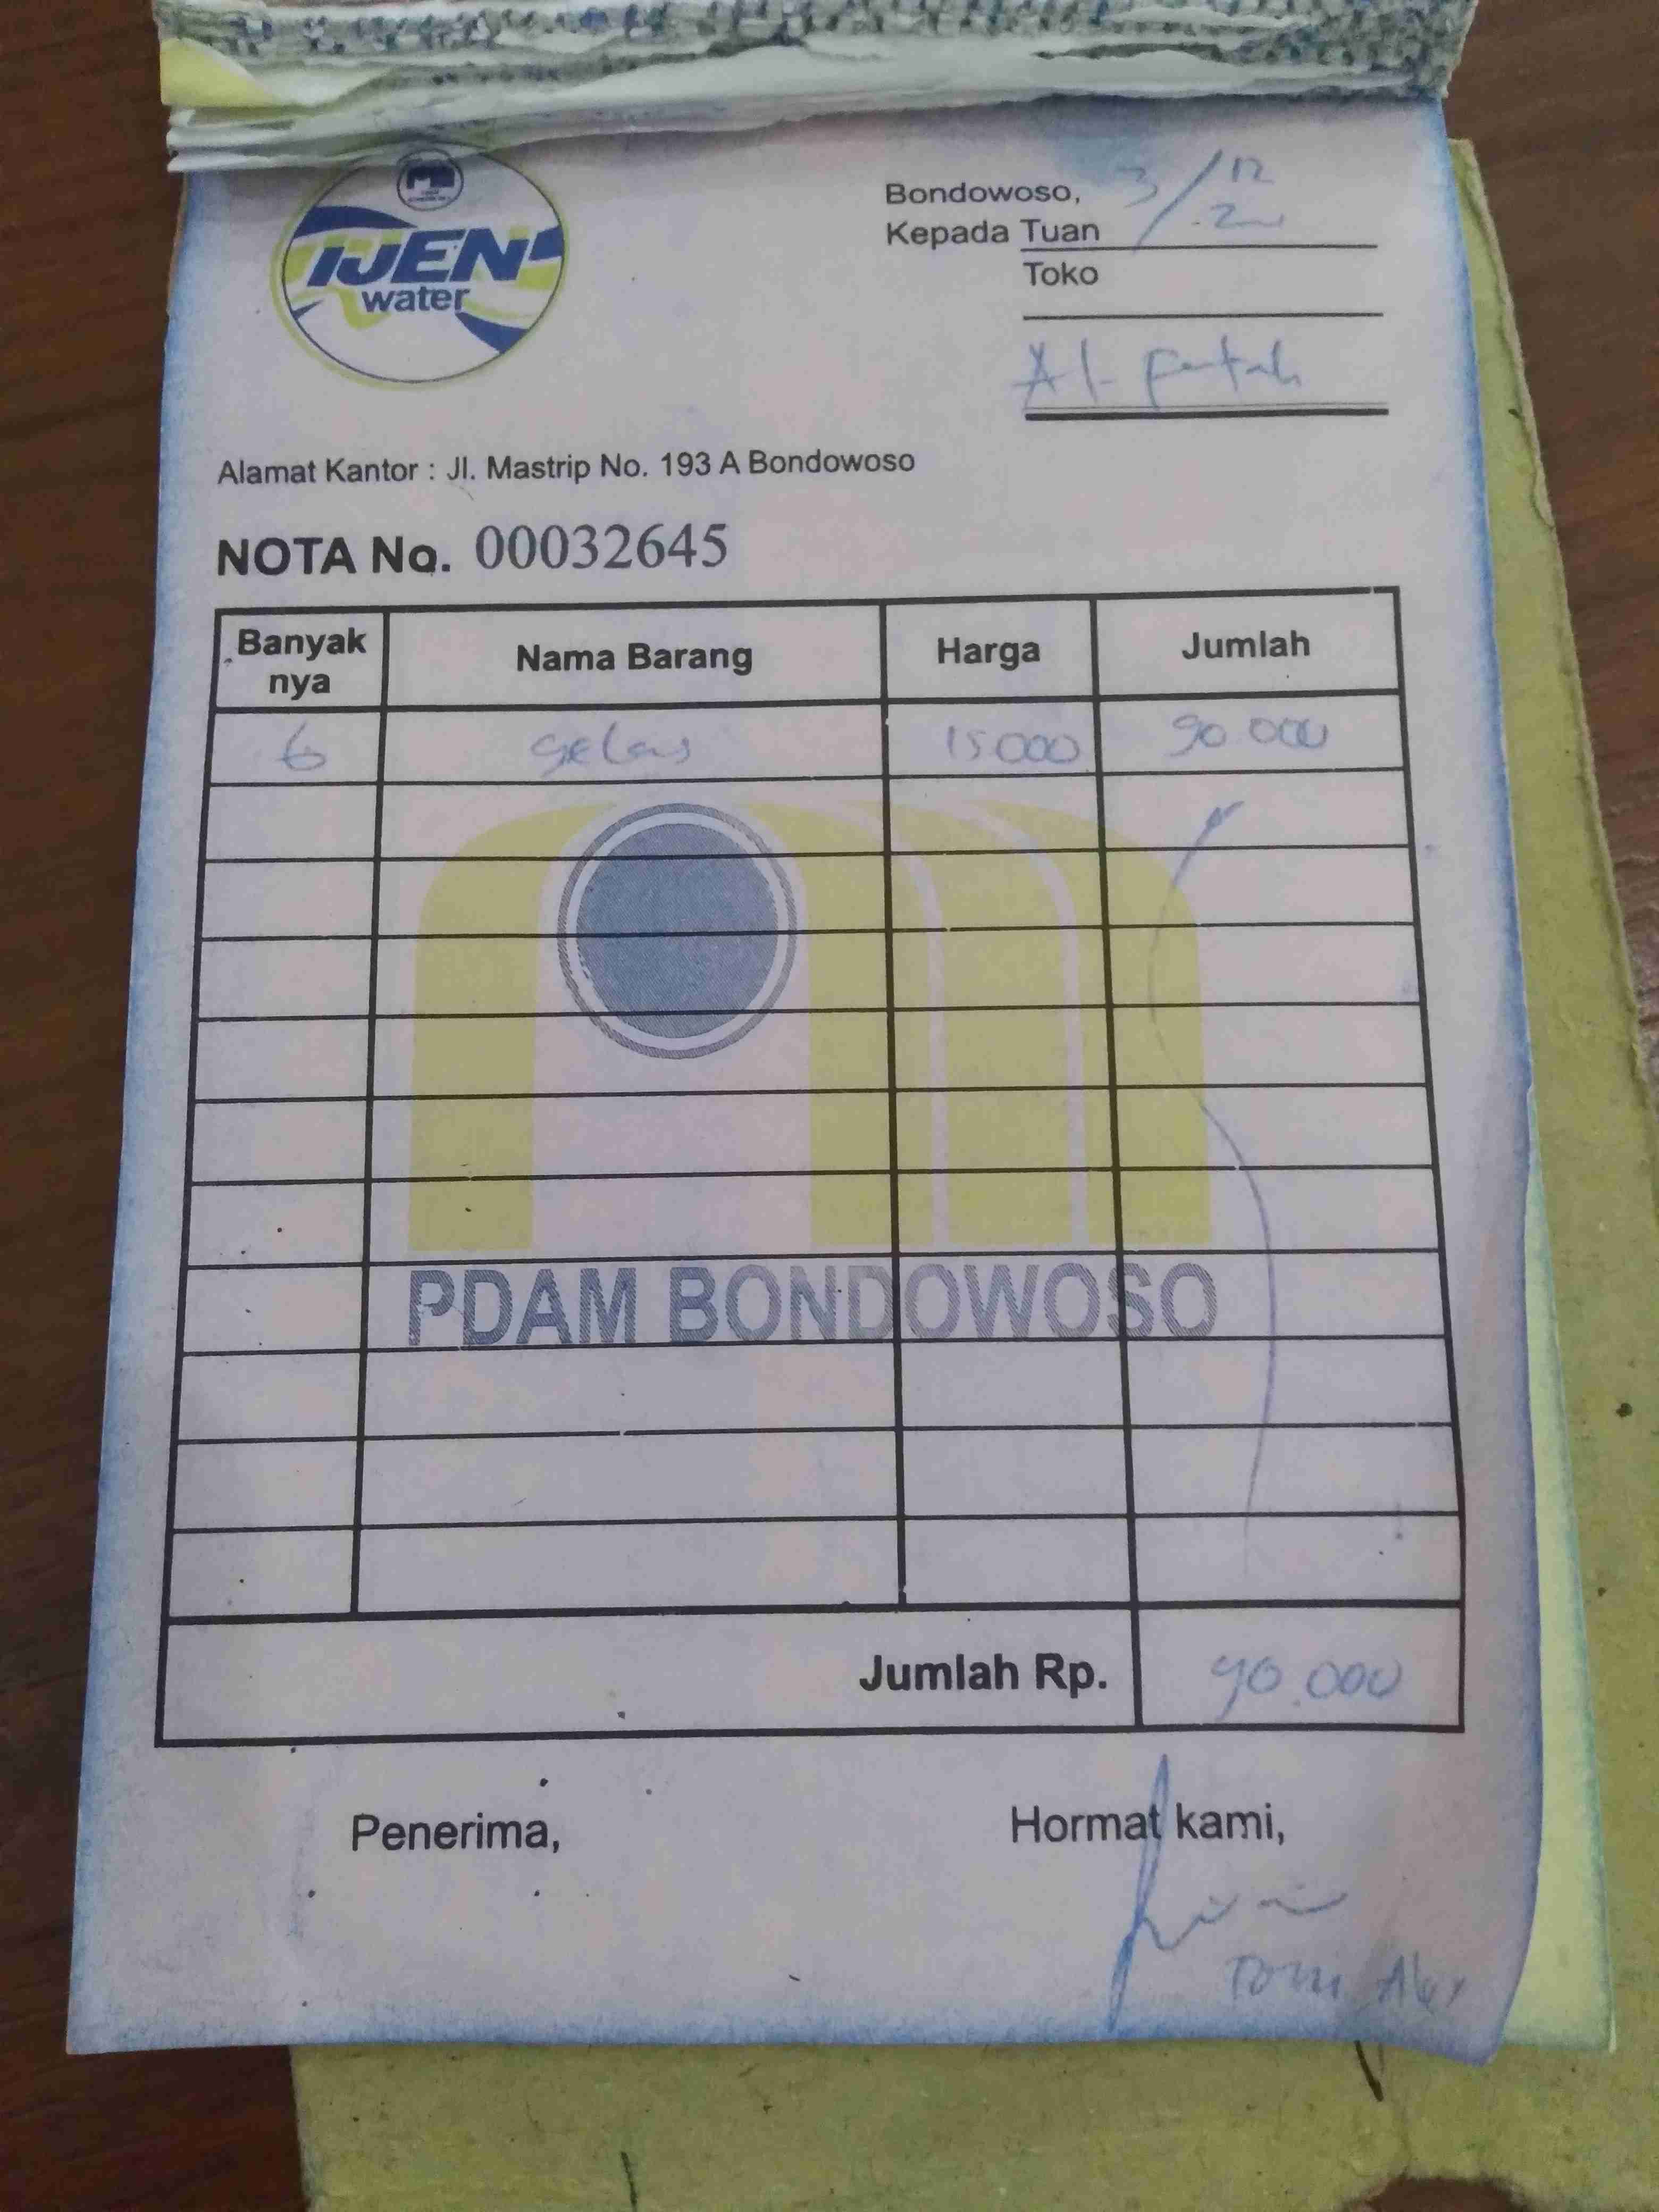 IJEN
water
Bondowoso, 3/12
Kepada Tuan
Toko
Al-Fattah
Alamat Kantor : Jl. Mastrip No. 193 A Bondowoso
NOTA No. 00032645
Banyak nya Nama Barang Harga Jumlah
6 gelas 15000 90.000
PDAM BONDOWOSO
Jumlah Rp. 90.000
Penerima, Hormat kami,